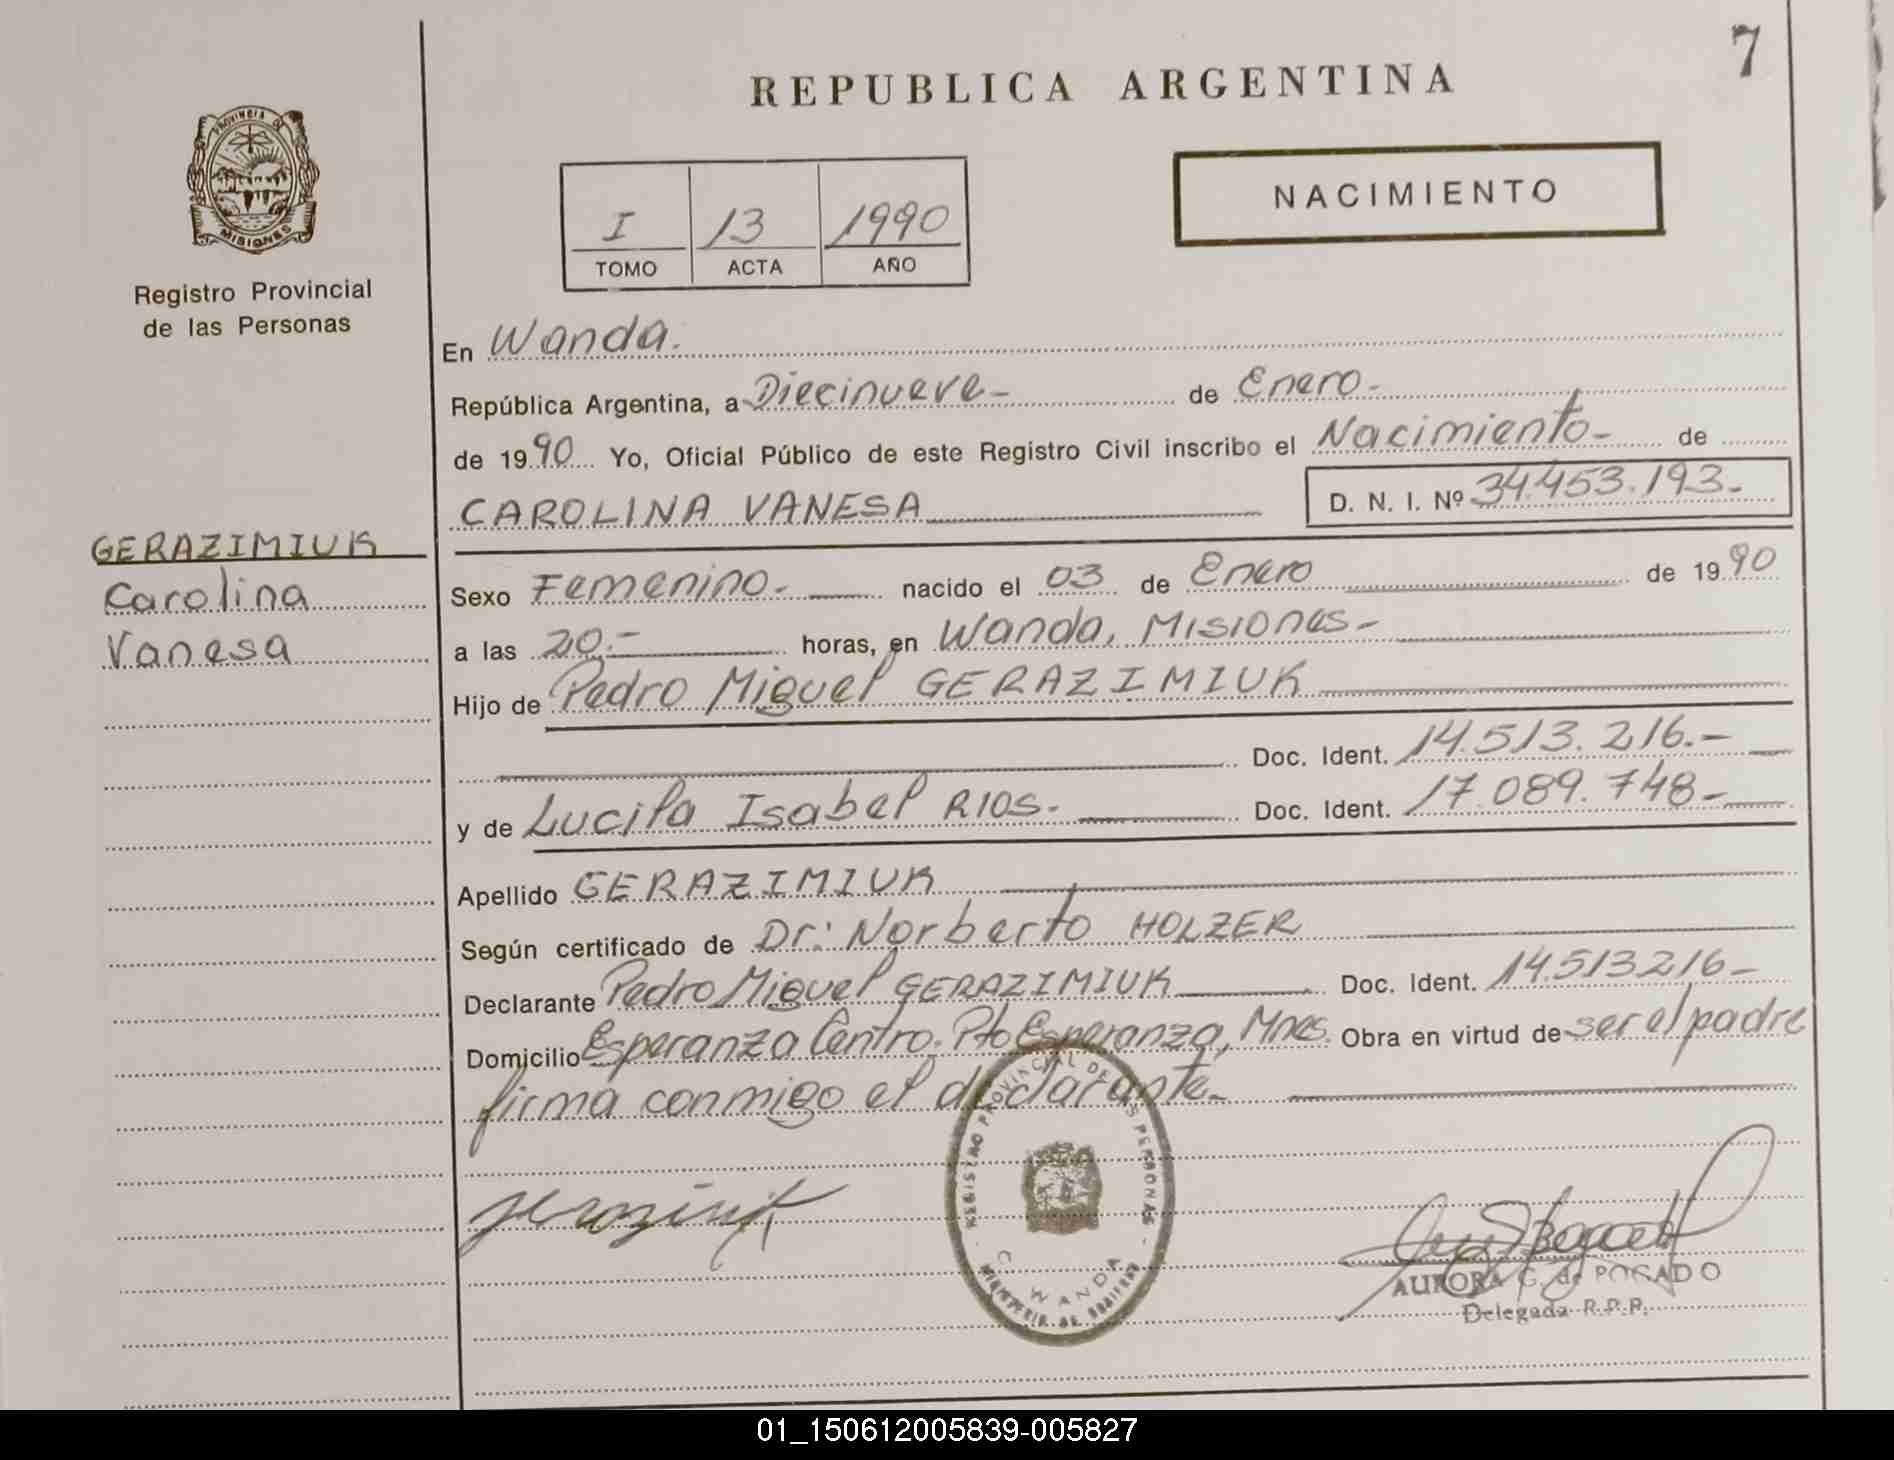 7
REPUBLICA ARGENTINA
PROVINCIA DE
MISIONES
Registro Provincial
de las Personas
I 13 1990
TOMO ACTA AÑO
NACIMIENTO
En Wanda.
República Argentina, a Diecinueve- de Enero-
de 1990 Yo, Oficial Público de este Registro Civil inscribo el Nacimiento- de
CAROLINA VANESA D. N. I. Nº 34.453.193-
GERAZIMIUK
Carolina
Vanesa
Sexo Femenino- nacido el 03 de Enero de 1990
a las 20.- horas, en Wanda, Misiones-
Hijo de Pedro Miguel GERAZIMIUK
Doc. Ident. 14.513.216.-
y de Lucila Isabel RIOS- Doc. Ident. 17.089.748-
Apellido GERAZIMIUK
Según certificado de Dr: Norberto HOLZER
Declarante Pedro Miguel GERAZIMIUK Doc. Ident. 14.513216-
Domicilio Esperanza Centro. Pto Esperanza, Mnes. Obra en virtud de ser el padre
firma conmigo el declarante-
REGISTRO PROVINCIAL DE LAS PERSONAS
WANDA
AURORA G. de POSADO
Delegada R.P.P.
01_150612005839-005827